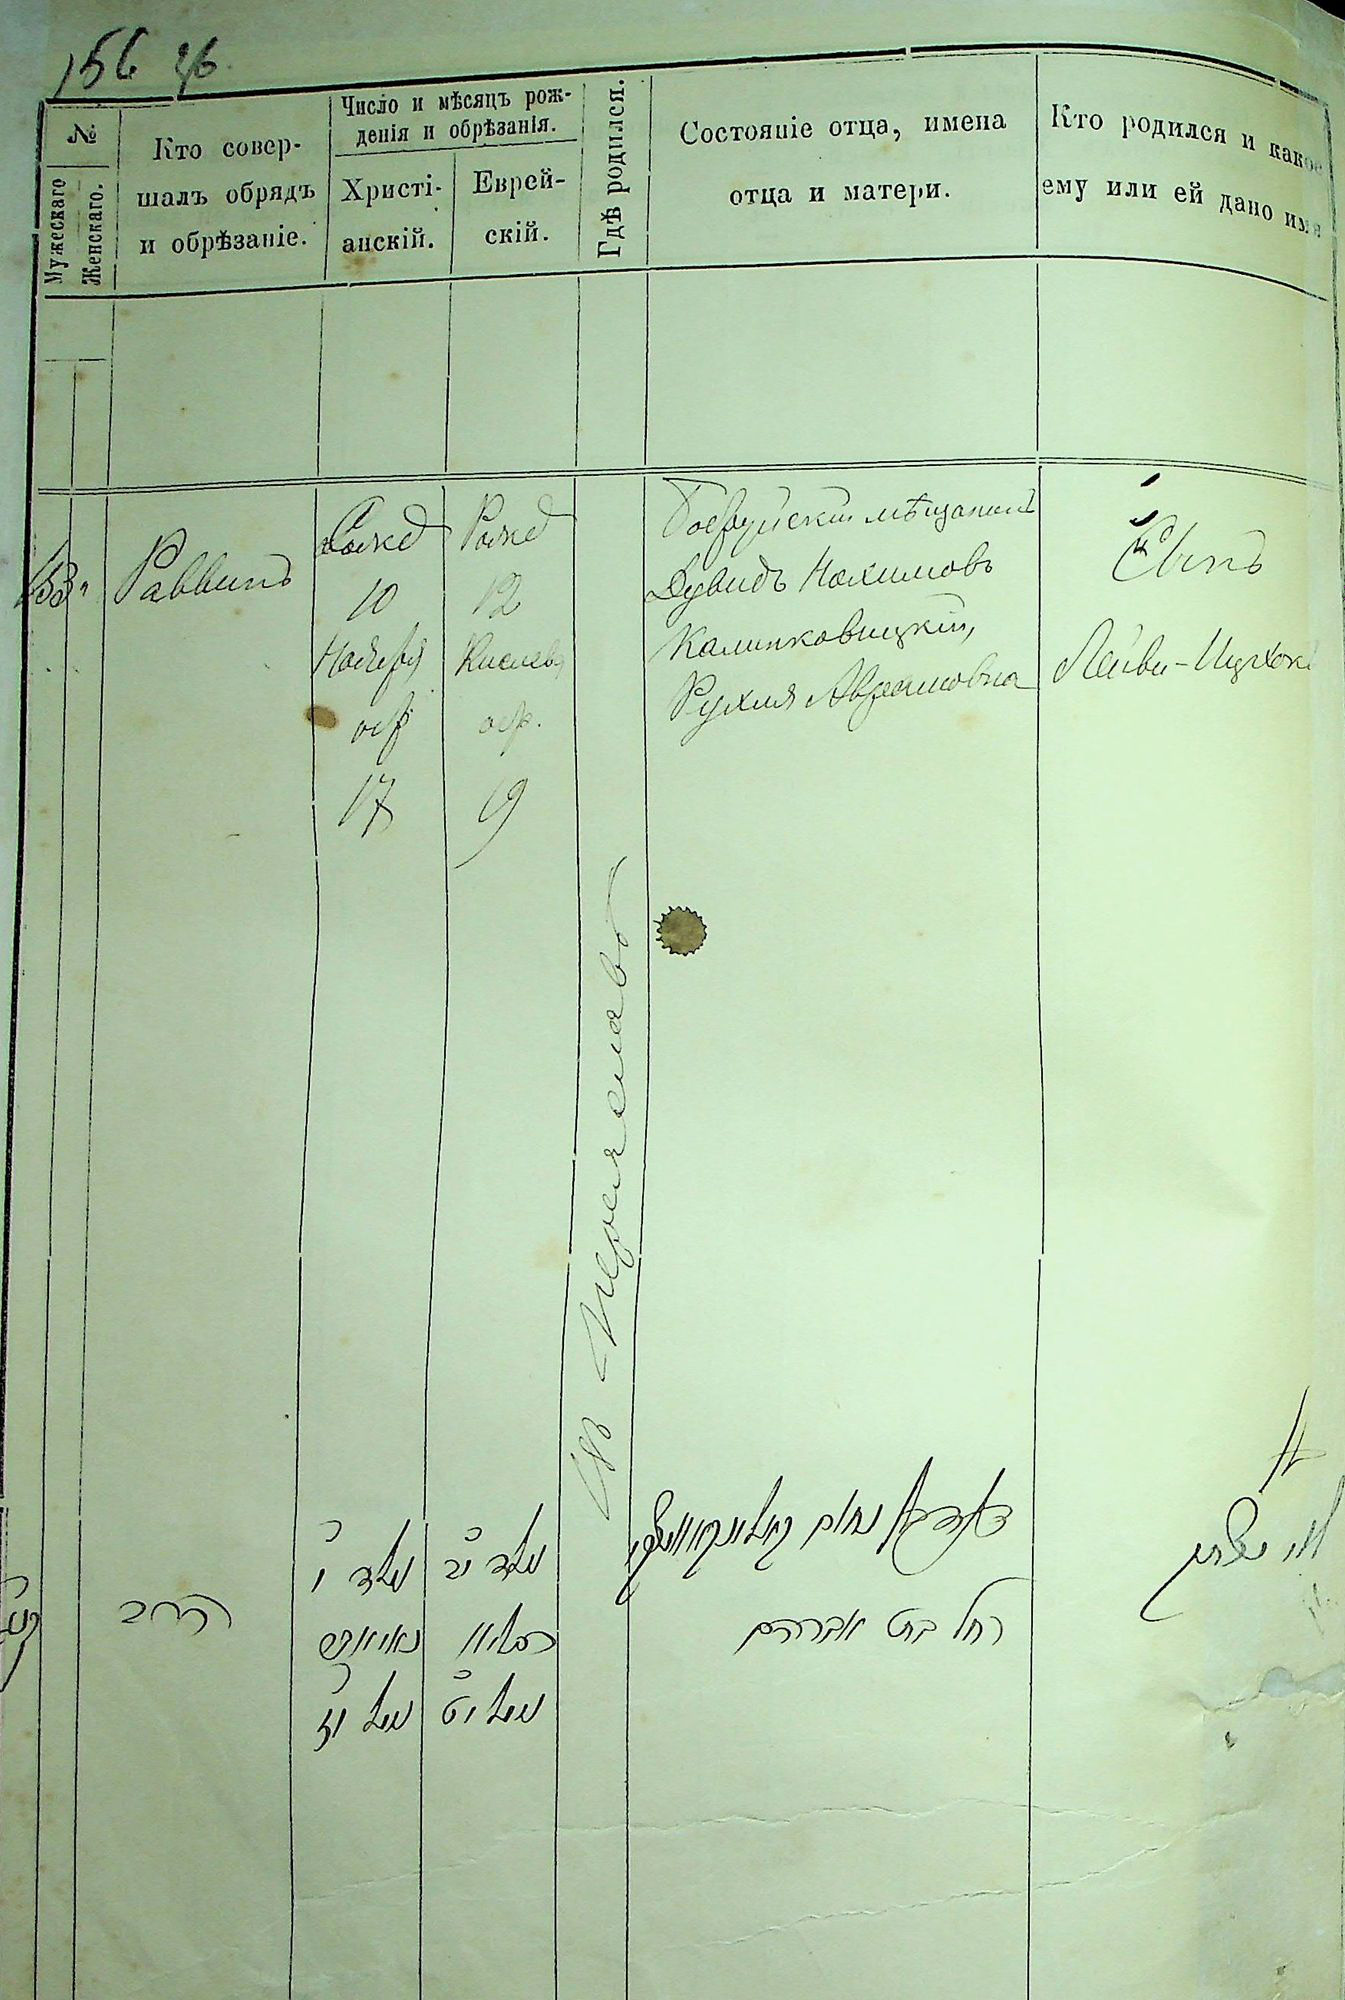 156 об.
№
Мужескаго
Женскаго.
Кто совер-
шалъ обрядъ
и обрѣзаніе.
Число и мѣсяцъ рож-
денія и обрѣзанія.
Христі-
анскій.
Еврей-
скій.
Гдѣ родился.
Состояніе отца, имена
отца и матери.
Кто родился и какое
ему или ей дано имя
153
Раввинъ
Рожд
10
Ноября
обр
17
Рожд
12
Кислева
обр.
19
Въ Переяславѣ
Бобруйскій мѣщанинъ
Дувидъ Нохимовъ
Калинковицкій,
Рухля Абрамовна
Сынъ
Лейви-Ицхокъ
הרב
נולד י׳
נאיאבש
נימול יז
נולד יב
כסליו
נימול יט
דוד בן נחום קאלינקאוויצקי
רחל בת אברהם
בן
לוי יצחק